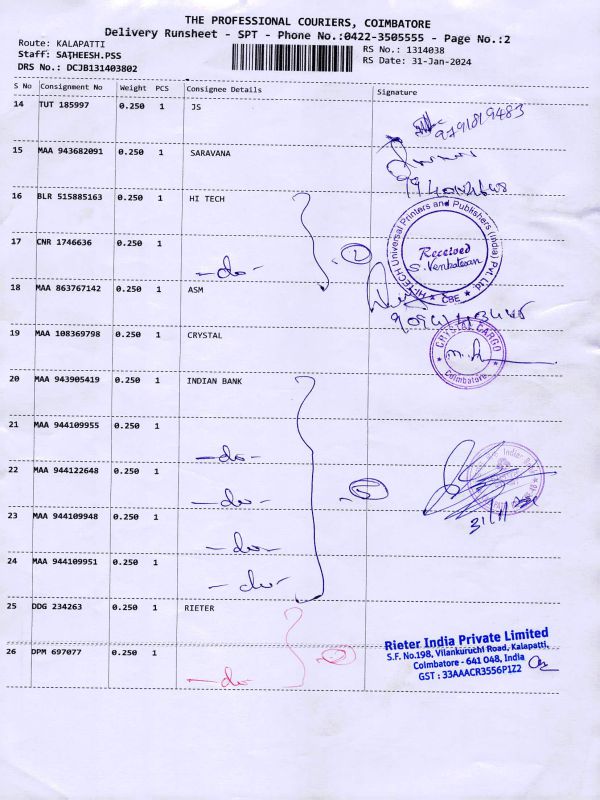 THE PROFESSIONAL COURIERS, COIMBATORE
Delivery Runsheet - SPT - Phone No.:0422-3505555 - Page No.:2
Route: KALAPATTI
Staff: SATHEESH.PSS
DRS No.: DCJB131403802
RS No.: 1314038
RS Date: 31-Jan-2024
S No Consignment No Weight PCS Consignee Details Signature
14 TUT 185997 0.250 1 JS
9791819483
15 MAA 943682091 0.250 1 SARAVANA
16 BLR 515885163 0.250 1 HI TECH
HI-TECH Universal Printers and Publishers (India) Pvt. Ltd. ★ CBE ★
Received
S. Venkatesan
17 CNR 1746636 0.250 1
-do-
18 MAA 863767142 0.250 1 ASM
19 MAA 108369798 0.250 1 CRYSTAL
CRYSTAL CARGO
Coimbatore
20 MAA 943905419 0.250 1 INDIAN BANK
21 MAA 944109955 0.250 1
-do-
22 MAA 944122648 0.250 1
-do-
23 MAA 944109948 0.250 1
-do-
24 MAA 944109951 0.250 1
-do-
25 DDG 234263 0.250 1 RIETER
26 DPM 697077 0.250 1
-do-
2
Rieter India Private Limited
S.F. No.198, Vilankuruchi Road, Kalapatti,
Coimbatore - 641 048, India
GST : 33AAACR3556P1Z2